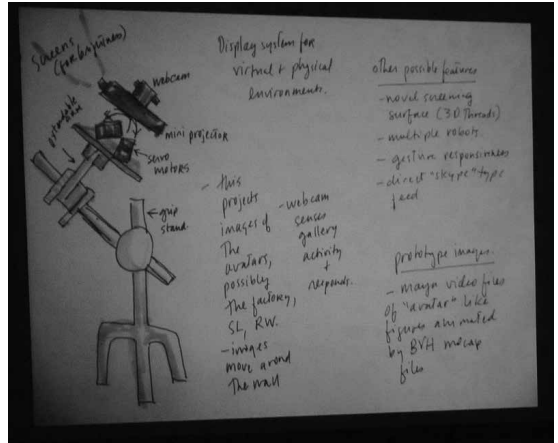 screens
(for brightness)
webcam
extendable
mini projector
servo
motors
grip
stand
Display system for
virtual + physical
environments.
- this
projects
images of
The
avatars,
possibly
The factory,
SL, RW.
- images
move around
The wall
- webcam
senses
gallery
activity
+
responds.
other possible features
- novel screening
surface (3D Threads)
- multiple robots.
- gesture responsiveness
- direct "skype" type
feed
prototype images.
- maya video files
of "avatar" like
figures animated
by BVH mocap
files